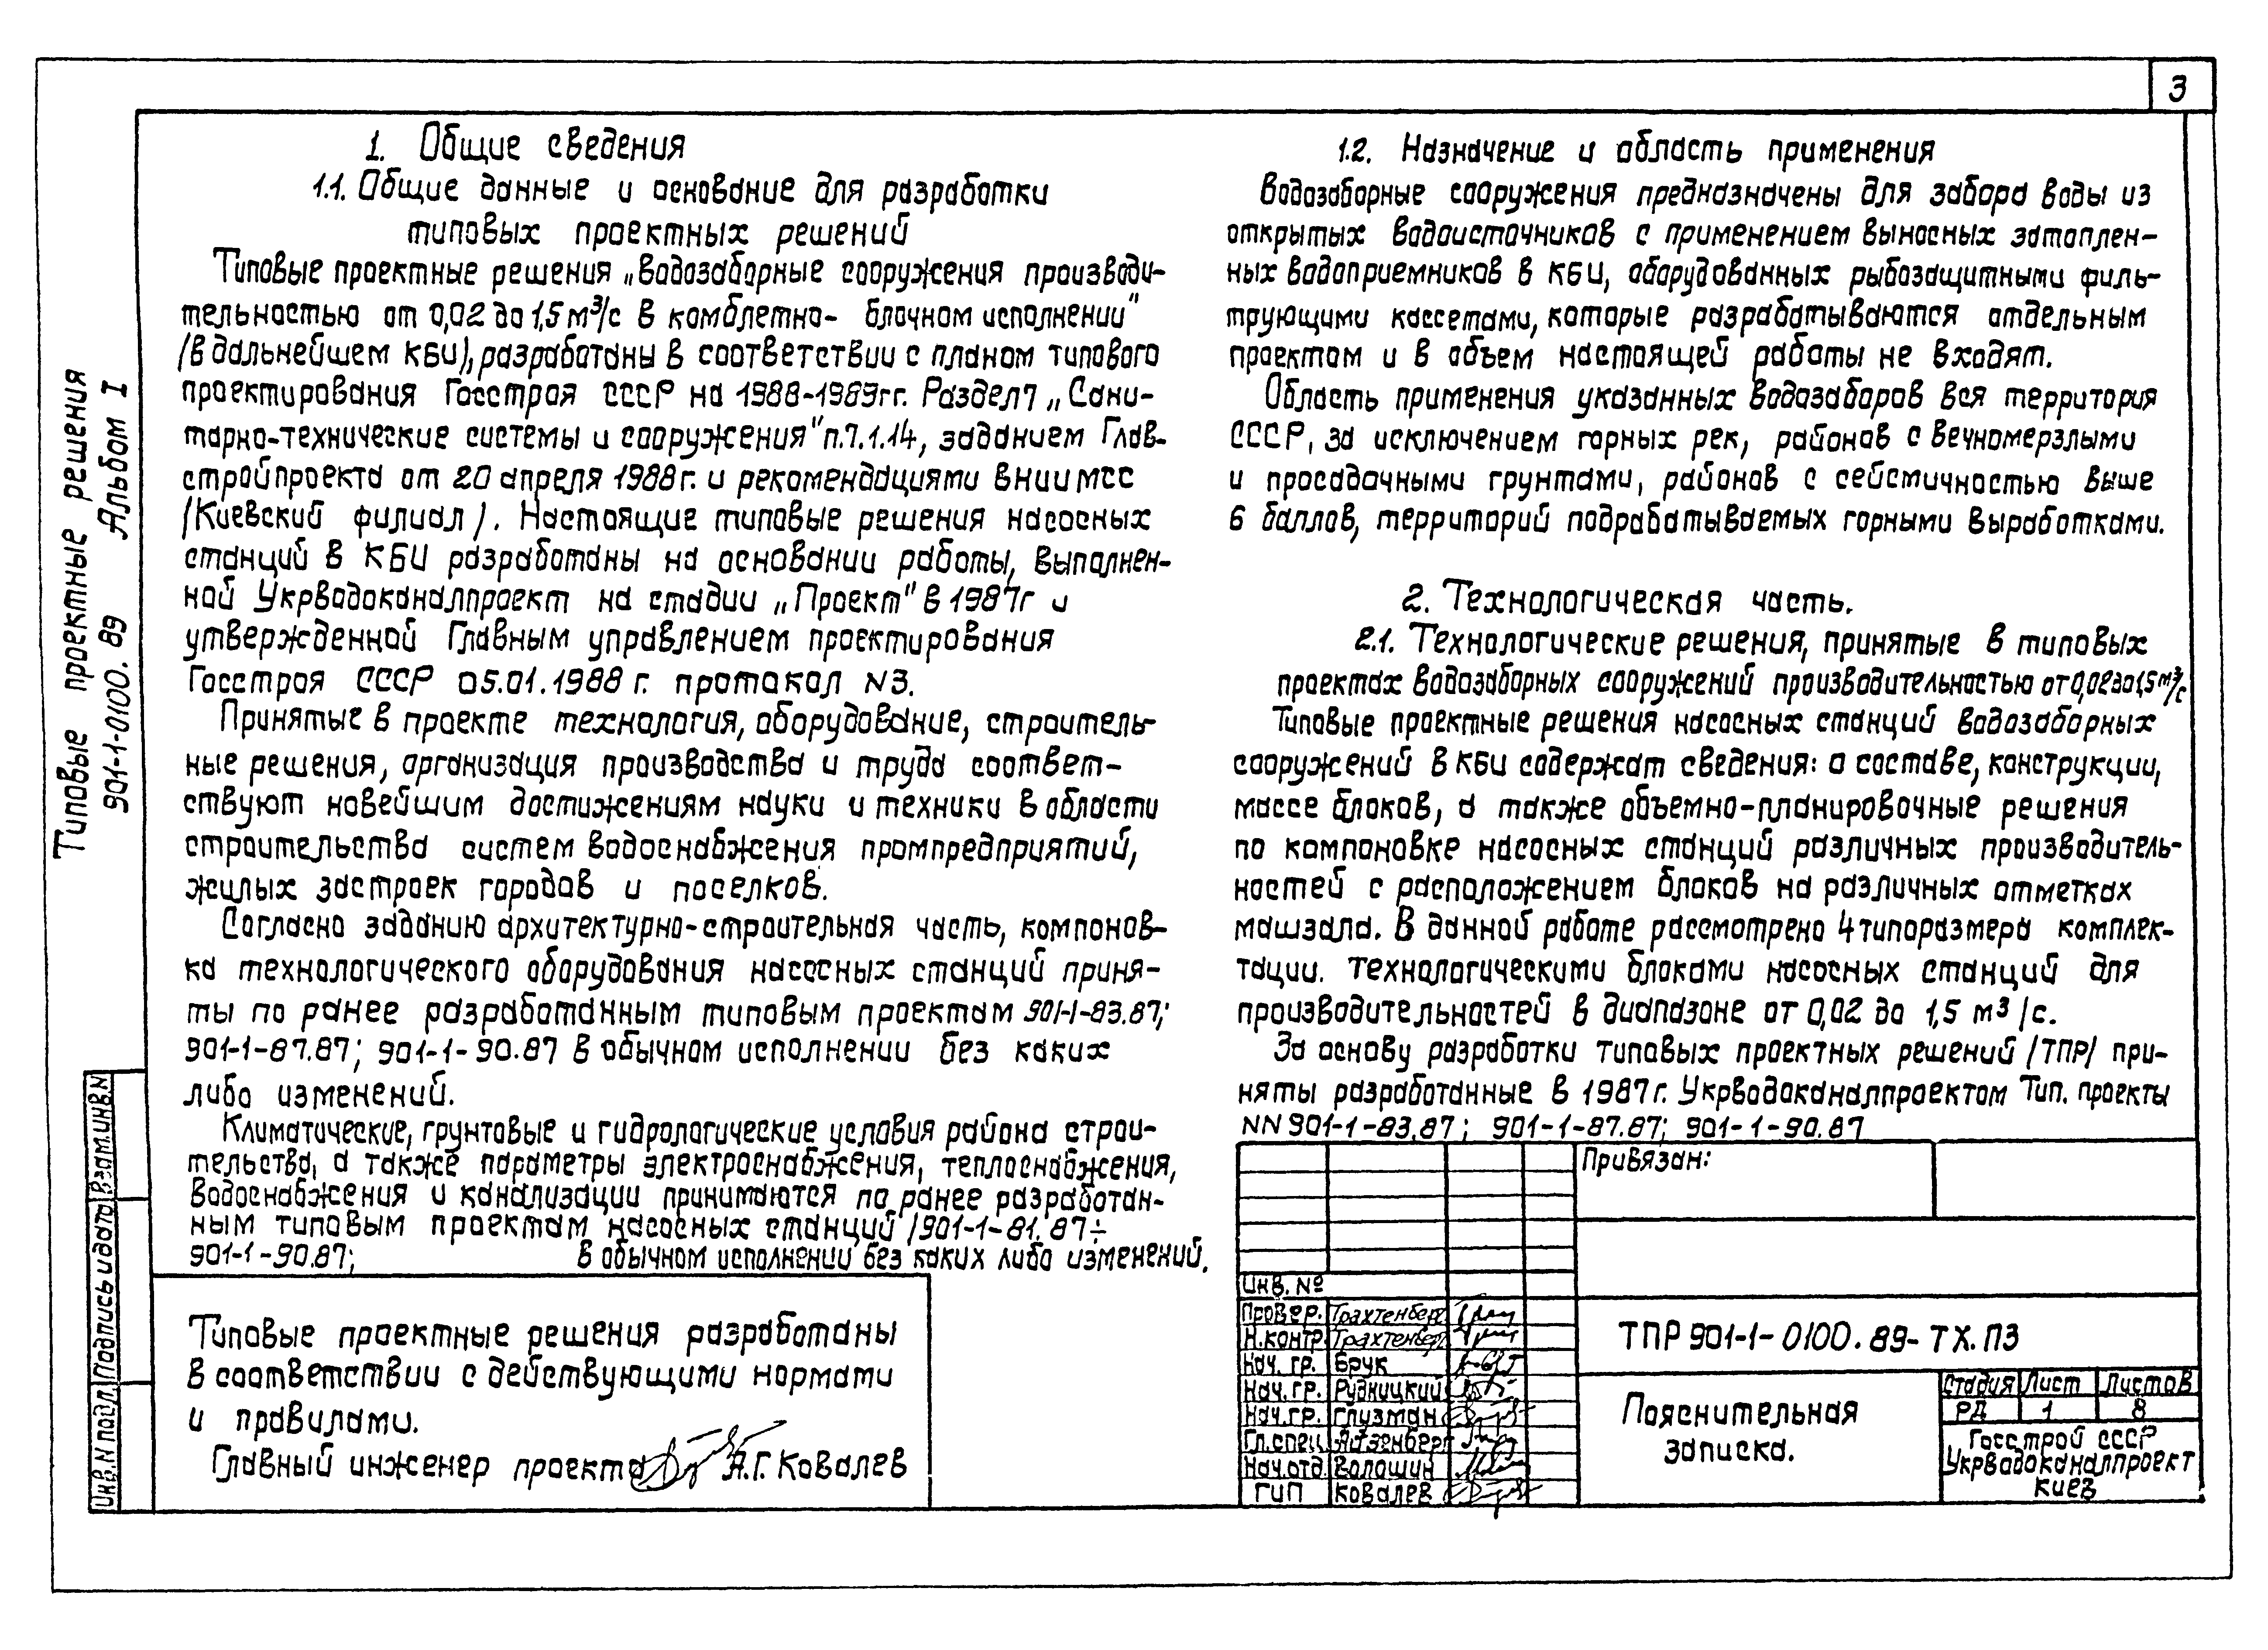 3
Типовые проектные решения
901-1-0100.89 Альбом I
1. Общие сведения
1.1. Общие данные и основание для разработки
типовых проектных решений
Типовые проектные решения „Водозаборные сооружения производи-
тельностью от 0,02 до 1,5 м³/с в комблетно- блочном исполнении"
/в дальнейшем КБИ/, разработаны в соответствии с планом типового
проектирования Госстроя СССР на 1988-1989гг. Раздел 7 „Сани-
тарно-технические системы и сооружения" п.7.1.14, заданием Глав-
стройпроекта от 20 апреля 1988г. и рекомендациями ВНИИмсс
/Киевский филиал/. Настоящие типовые решения насосных
станций в КБИ разработаны на основании работы, выполнен-
ной Укрводоканалпроект на стадии „Проект" в 1987г и
утвержденной Главным управлением проектирования
Госстроя СССР 05.01.1988 г. протокол N3.
Принятые в проекте технология, оборудование, строитель-
ные решения, организация производства и труда соответ-
ствуют новейшим достижениям науки и техники в области
строительства систем водоснабжения промпредприятий,
жилых застроек городов и поселков.
Согласно заданию архитектурно-строительная часть, компонов-
ка технологического оборудования насосных станций приня-
ты по ранее разработанным типовым проектам 901-1-83.87;
901-1-87.87; 901-1-90.87 в обычном исполнении без каких
либо изменений.
Климатические, грунтовые и гидрологические условия района строи-
тельства, а также параметры электроснабжения, теплоснабжения,
водоснабжения и канализации принимаются по ранее разработан-
ным типовым проектам насосных станций /901-1-81.87÷
901-1-90.87; в обычном исполнении без каких либо изменений.
Типовые проектные решения разработаны
в соответствии с действующими нормами
и правилами.
Главный инженер проекта А.Г. Ковалев
1.2. Назначение и область применения
Водозаборные сооружения предназначены для забора воды из
открытых водоисточников с применением выносных затоплен-
ных водоприемников в КБИ, оборудованных рыбозащитными филь-
трующими кассетами, которые разрабатываются отдельным
проектом и в объем настоящей работы не входят.
Область применения указанных водозаборов вся территория
СССР, за исключением горных рек, районов с вечномерзлыми
и просадочными грунтами, районов с сейсмичностью выше
6 баллов, территорий подрабатываемых горными выработками.
2. Технологическая часть.
2.1. Технологические решения, принятые в типовых
проектах водозаборных сооружений производительностью от 0,02 до 1,5 м³/с
Типовые проектные решения насосных станций водозаборных
сооружений в КБИ содержат сведения: о составе, конструкции,
массе блоков, а также объемно-планировочные решения
по компоновке насосных станций различных производитель-
ностей с расположением блоков на различных отметках
машзала. В данной работе рассмотрено 4 типоразмера комплек-
тации. технологическими блоками насосных станций для
производительностей в диапазоне от 0,02 до 1,5 м³/с.
За основу разработки типовых проектных решений /ТПР/ при-
няты разработанные в 1987г. Укрводоканалпроектом Тип. проекты
NN 901-1-83.87; 901-1-87.87; 901-1-90.87
Привязан:
Инв. №
Провер. Трахтенберг
Н.контр. Трахтенберг
Нач. гр. Брук
Нач. гр. Рудницкий
Нач. гр. Глузман
Гл.спец. Айзенберг
Нач.отд. Волошин
ГИП Ковалев
ТПР 901-1-0100.89-ТХ.ПЗ
Пояснительная
записка.
Стадия Лист Листов
РД 1 8
Госстрой СССР
Укрводоканалпроект
Киев
Взам.инв.N
Подпись и дата
Инв.N подл.